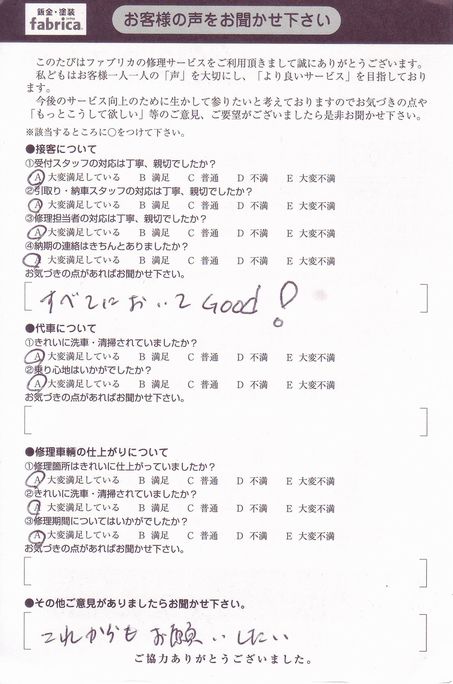 鈑金・塗装
fabrica
お客様の声をお聞かせ下さい
このたびはファブリカの修理サービスをご利用頂きまして誠にありがとうございます。
私どもはお客様一人一人の「声」を大切にし、「より良いサービス」を目指しており
ます。
今後のサービス向上のために生かして参りたいと考えておりますのでお気づきの点や
「もっとこうして欲しい」等のご意見、ご要望がございましたら是非お聞かせ下さい。
※該当するところに○をつけて下さい。
●接客について
①受付スタッフの対応は丁寧、親切でしたか？
A 大変満足している B 満足 C 普通 D 不満 E 大変不満
②引取り・納車スタッフの対応は丁寧、親切でしたか？
A 大変満足している B 満足 C 普通 D 不満 E 大変不満
③修理担当者の対応は丁寧、親切でしたか？
A 大変満足している B 満足 C 普通 D 不満 E 大変不満
④納期の連絡はきちんとありましたか？
A 大変満足している B 満足 C 普通 D 不満 E 大変不満
お気づきの点があればお聞かせ下さい。
すべてにおいてGood！
●代車について
①きれいに洗車・清掃されていましたか？
A 大変満足している B 満足 C 普通 D 不満 E 大変不満
②乗り心地はいかがでしたか？
A 大変満足している B 満足 C 普通 D 不満 E 大変不満
お気づきの点があればお聞かせ下さい。
●修理車輌の仕上がりについて
①修理箇所はきれいに仕上がっていましたか？
A 大変満足している B 満足 C 普通 D 不満 E 大変不満
②きれいに洗車・清掃されていましたか？
A 大変満足している B 満足 C 普通 D 不満 E 大変不満
③修理期間についてはいかがでしたか？
A 大変満足している B 満足 C 普通 D 不満 E 大変不満
お気づきの点があればお聞かせ下さい。
●その他ご意見がありましたらお聞かせ下さい。
これからもお願いしたい
ご協力ありがとうございました。